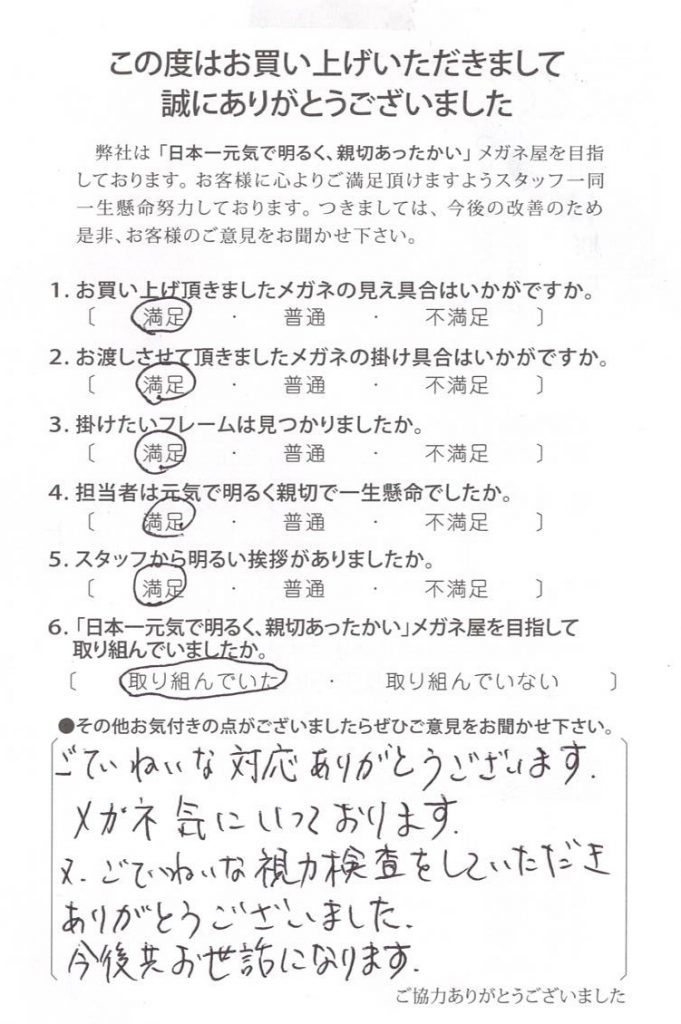 この度はお買い上げいただきまして
誠にありがとうございました
弊社は「日本一元気で明るく、親切あったかい」メガネ屋を目指
しております。お客様に心よりご満足頂けますようスタッフ一同
一生懸命努力しております。つきましては、今後の改善のため
是非、お客様のご意見をお聞かせ下さい。
1. お買い上げ頂きましたメガネの見え具合はいかがですか。
〔 満足 ・ 普通 ・ 不満足 〕
2. お渡しさせて頂きましたメガネの掛け具合はいかがですか。
〔 満足 ・ 普通 ・ 不満足 〕
3. 掛けたいフレームは見つかりましたか。
〔 満足 ・ 普通 ・ 不満足 〕
4. 担当者は元気で明るく親切で一生懸命でしたか。
〔 満足 ・ 普通 ・ 不満足 〕
5. スタッフから明るい挨拶がありましたか。
〔 満足 ・ 普通 ・ 不満足 〕
6.「日本一元気で明るく、親切あったかい」メガネ屋を目指して
取り組んでいましたか。
〔 取り組んでいた ・ 取り組んでいない 〕
●その他お気付きの点がございましたらぜひご意見をお聞かせ下さい。
ごていねいな対応ありがとうございます.
メガネ気にいっております.
又.ごていねいな視力検査をしていただき
ありがとうございました.
今後共お世話になります.
ご協力ありがとうございました